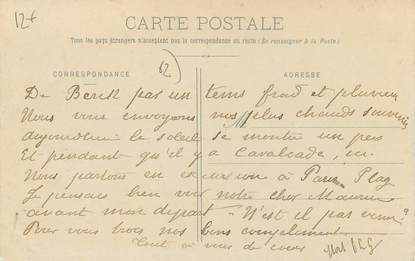 12€
CARTE POSTALE
Tous les pays étrangers n'acceptent pas la correspondance au recto (Se renseigner à la Poste)
62
CORRESPONDANCE ADRESSE
De Berck par un tems froid et pluvieux
Nous vous envoyons nos plus chauds souvenirs
aujourdhui le soleil se montre un peu
Et pendant qu'il y a Cavalcade,
Nous partons en excursion à Paris Plag
Je pensais bien voir notre cher Maurice
avant mon départ - N'est il pas venu?
Pour vous trois nos bons compliments
Tout à vous de coeur